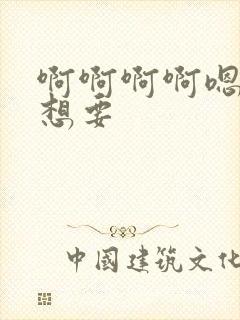 啊啊啊啊嗯
想要
中國建筑文化